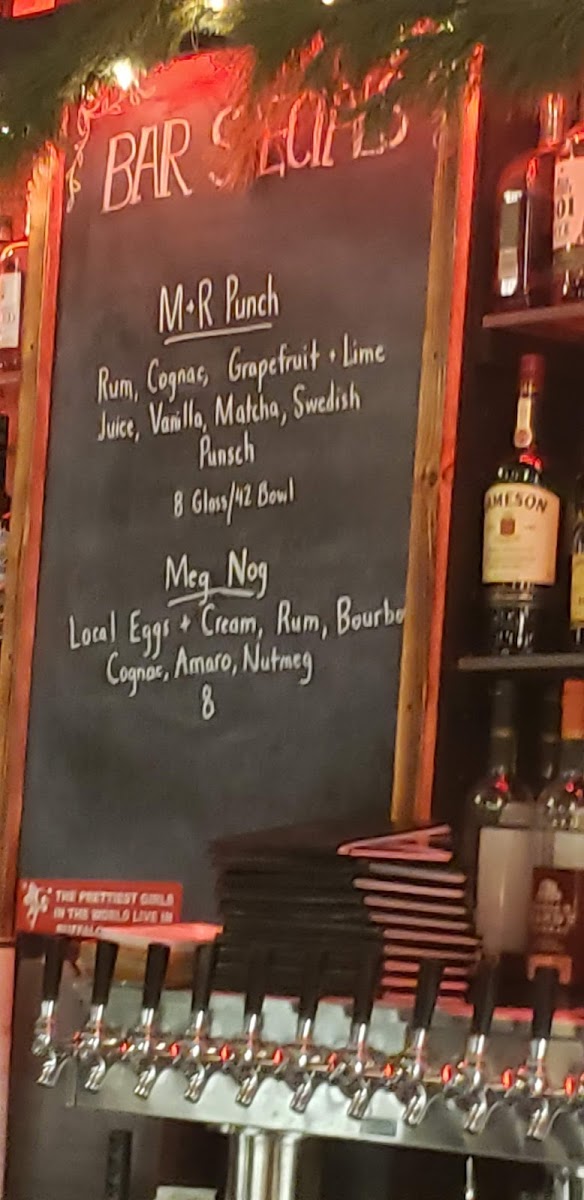 BAR SPECIALS
M+R Punch
Rum, Cognac, Grapefruit + Lime
Juice, Vanilla, Matcha, Swedish
Punsch
8 Glass/42 Bowl
Meg Nog
Local Eggs + Cream, Rum, Bourbo
Cognac, Amaro, Nutmeg
8
JAMESON
01
THE PRETTIEST GIRLS
IN THE WORLD LIVE IN
BUFFALO